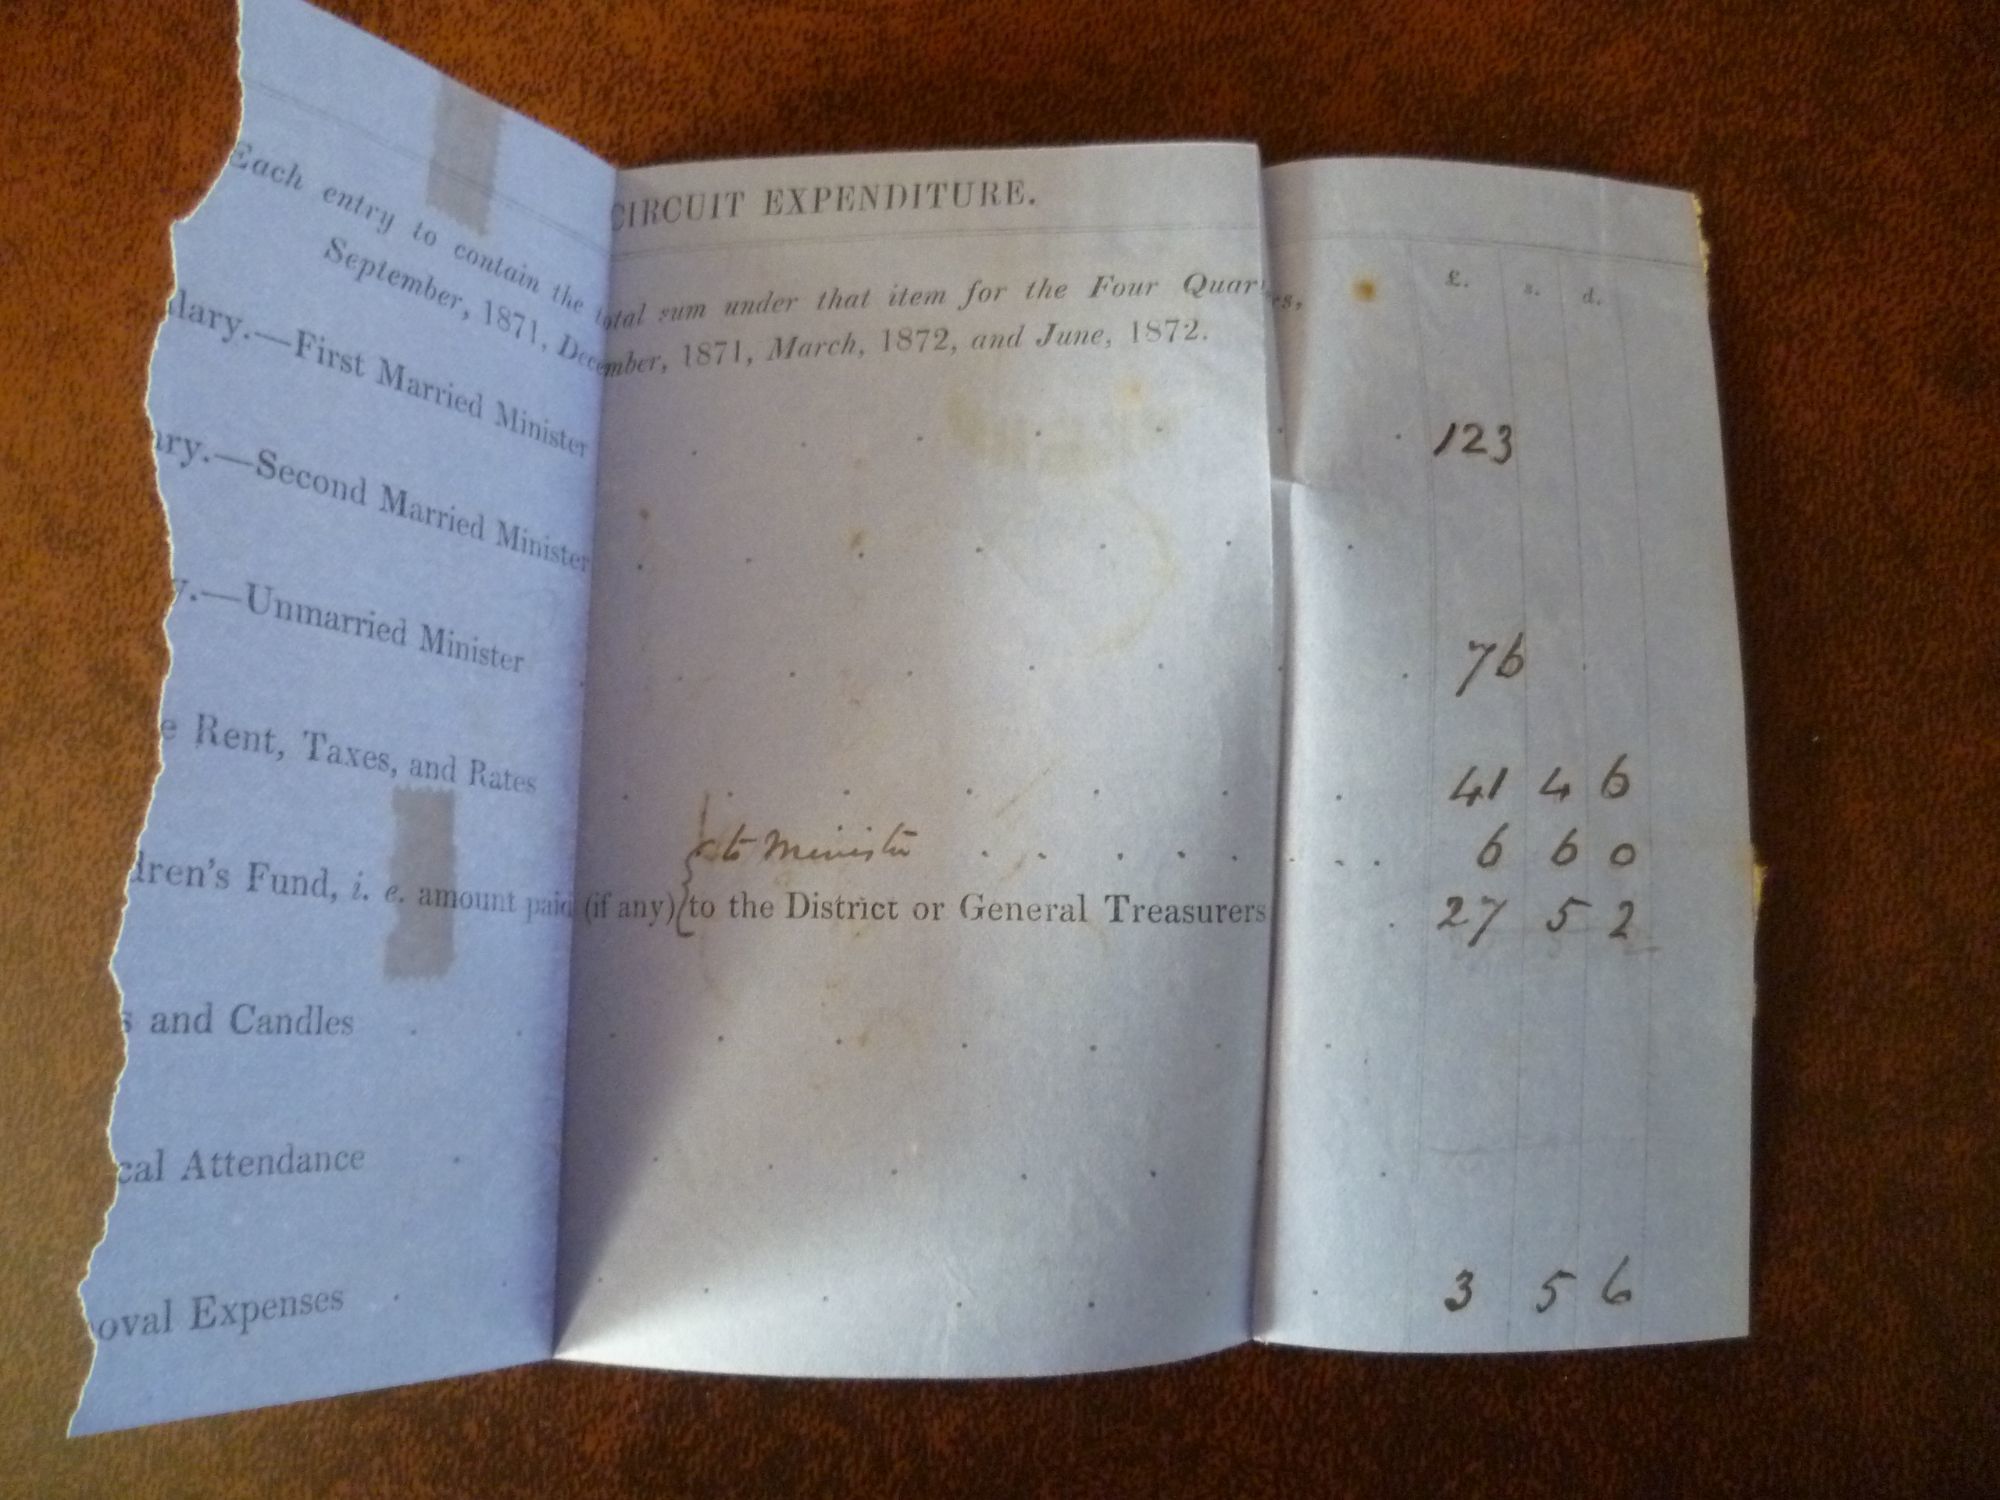 CIRCUIT EXPENDITURE.
£. s. d.
Each entry to contain the total sum under that item for the Four Quarters,
September, 1871, December, 1871, March, 1872, and June, 1872.
lary.—First Married Minister . . . . . . . 123
ary.—Second Married Minister . . . . . . .
y.—Unmarried Minister . . . . . . . 76
e Rent, Taxes, and Rates . . . . . . . 41 4 6
to Minister . . . . . . . . . 6 6 0
dren's Fund, i. e. amount paid (if any) to the District or General Treasurers . 27 5 2
s and Candles . . . . . . . . .
cal Attendance . . . . . . .
oval Expenses . . . . . . . . 3 5 6